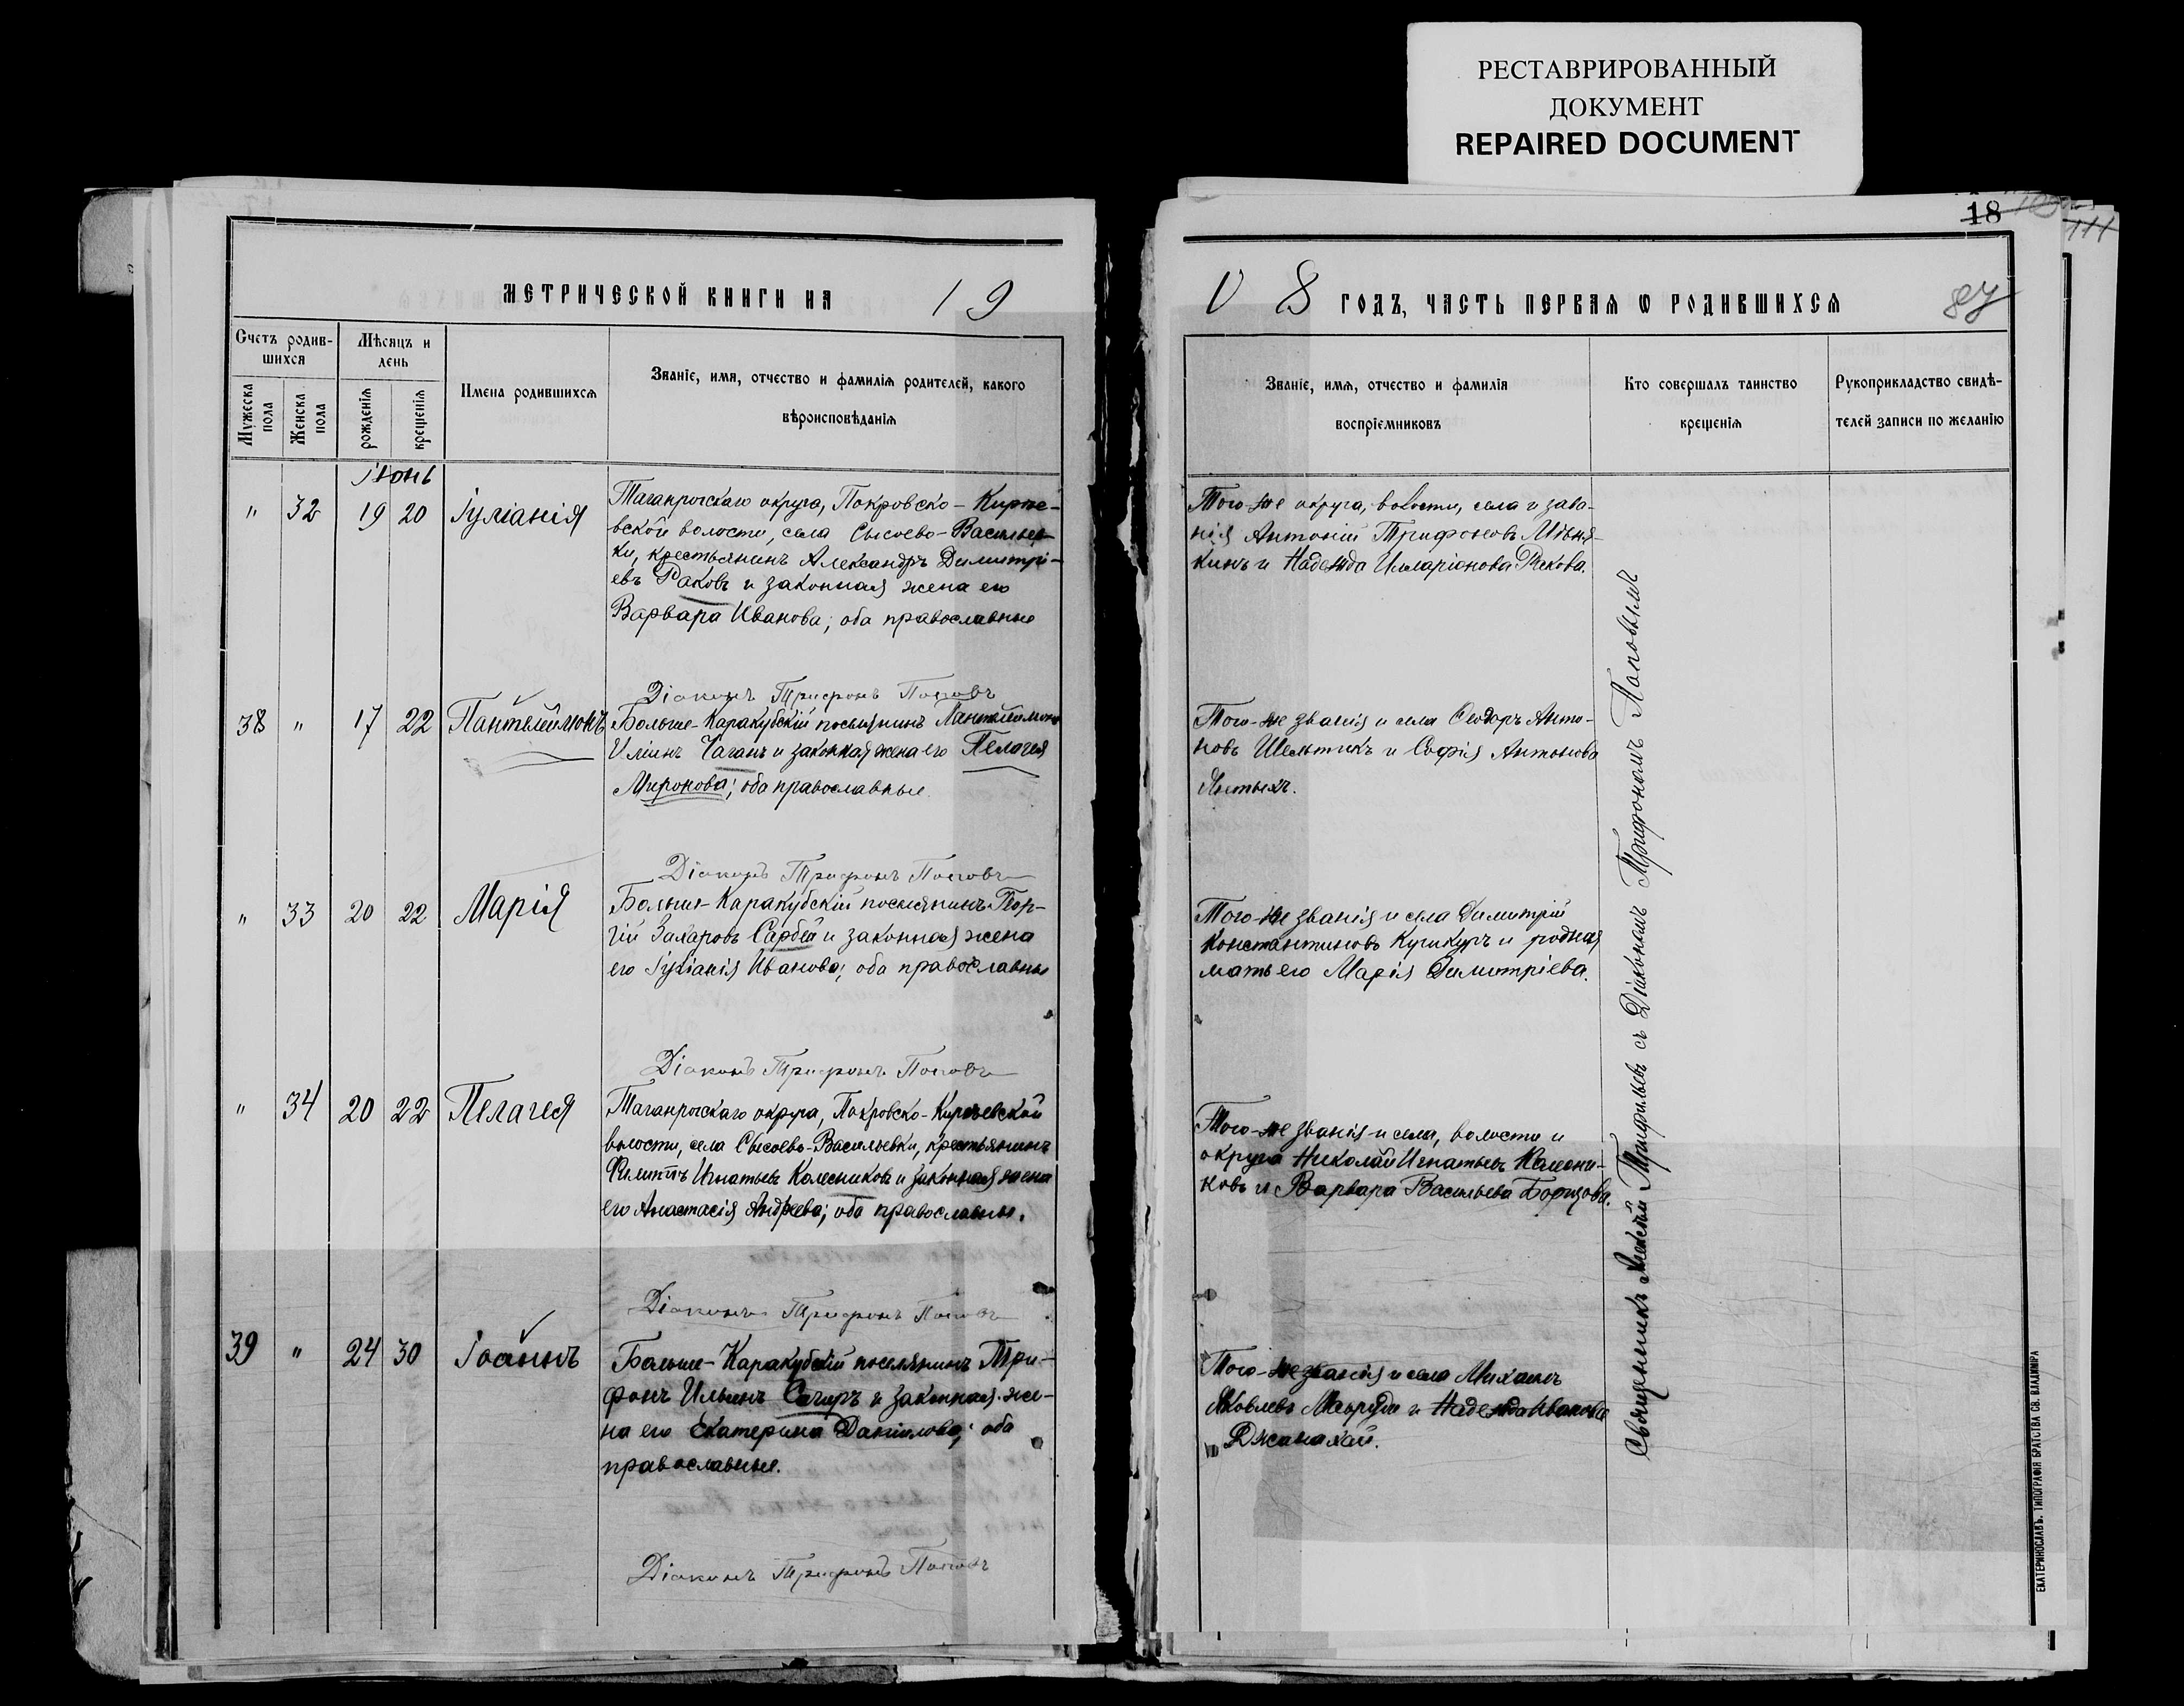 РЕСТАВРИРОВАННЫЙ
ДОКУМЕНТ
REPAIRED DOCUMENT
МЕТРИЧЕСКОЙ КНИГИ НА 19
Счетъ родив-
шихся
Мѣсяцъ и
день
Мужеска
пола
Женска
пола
рожденія
крещенія
Имена родившихся
Званіе, имя, отчество и фамилія родителей, какого
вѣроисповѣданія
Іюнь
" 32 19 20 Іуліанія
Таганрогскаго округа, Покровско-Кирѣе-
вской волости, села Сысоево-Васильев-
ки, крестьянинъ Александръ Димитрі-
евъ Раковъ и законная жена его
Варвара Иванова; оба православные
Діаконъ Трифонъ Поповъ
38 " 17 22 Пантелеймонъ
Больше-Каракубскій поселянинъ Пантелеймонъ
Иліинъ Чаганъ и законная жена его Пелагея
Миронова; оба православные
Діаконъ Трифонъ Поповъ
" 33 20 22 Марія
Больше-Каракубскій поселянинъ Геор-
гій Захаровъ Сарбей и законная жена
его Іуліанія Иванова; оба православны
Діаконъ Трифонъ Поповъ
" 34 20 22 Пелагея
Таганрогскаго округа, Покровско-Кирѣевской
волости, села Сысоево-Васильевки, крестьянинъ
Филиппъ Игнатьевъ Колесниковъ и законная жена
его Анастасія Андреева; оба православны.
Діаконъ Трифонъ Поповъ
39 " 24 30 Іоаннъ
Больше-Каракубскій поселянинъ Три-
фонъ Ильинъ и законная же-
на его Екатерина Даніилова; оба
православные.
Діаконъ Трифонъ Поповъ
18
111
87
0 8 ГОДЪ, ЧАСТЬ ПЕРВАЯ Ѡ РОДИВШИХСЯ
Званіе, имя, отчество и фамилія
воспріемниковъ
Кто совершалъ таинство
крещенія
Рукоприкладство свидѣ-
телей записи по желанію
Того-же округа, волости, села и зва-
нія Антоній Трифоновъ
и Надежда Илларіонова Ракова.
Того-же званія и села Ѳеодоръ Анто-
новъ и Софія Антонова
Того-же званія и села Димитрій
Константиновъ и родная
мать его Марія Димитріева.
Того-же званія и села, волости и
округа Николай Игнатьевъ Колесни-
ковъ и Варвара Васильева Борцова.
Того-же званія и села Михаилъ
Яковлевъ и Надежда Иванова
Джанахай.
Священникъ Алексѣй съ Діакономъ Трифономъ Поповымъ
ЕКАТЕРИНОСЛАВЪ. ТИПОГРАФІЯ БРАТСТВА СВ. ВЛАДИМІРА